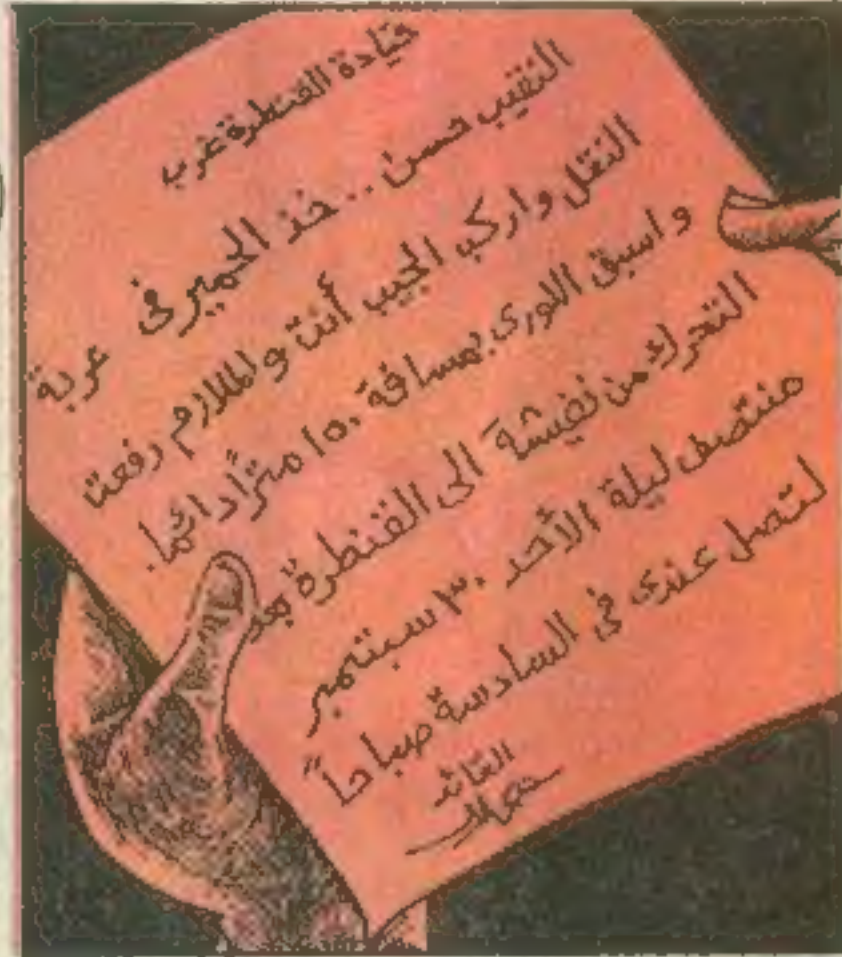 قيادة القنطرة غرب
النقيب حسن .. خذ الحمير فى عربة
النقل واركب الجيب أنت والملازم رفعت
واسبق اللورى بمسافة ١٥٠ متراً دائما.
التحرك من نفيشة الى القنطرة بعد
منتصف ليلة الأحد ٣٠ سبتمبر
لتصل عندى فى السادسة صباحاً
القائد